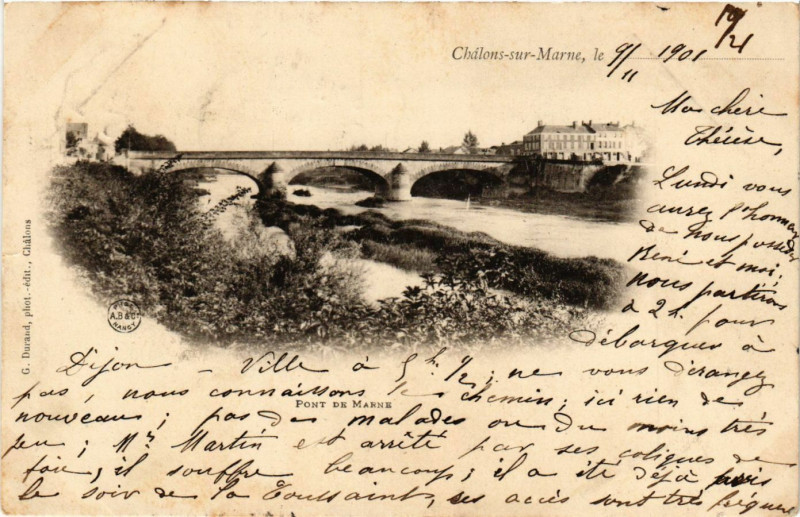 19/21
Châlons-sur-Marne, le 9/11 1901
Ma chère
Thérèse,
Lundi vous
aurez l'honneur
de nous posséder
René et moi;
nous partirons
à 2h. pour
débarquer à
Dijon - Ville à 5h. 1/2; ne vous dérangez
pas, nous connaissons le chemin; ici rien de
nouveau; pas de malades ou du moins très
peu; Mr Martin est arrêté par ses coliques de
foie, il souffre beaucoup; il a été déjà pris
le soir de la Toussaint, ses accès sont très fréquents
PONT DE MARNE
G. Durand, phot.-édit., Châlons
A.B&Cie
NANCY